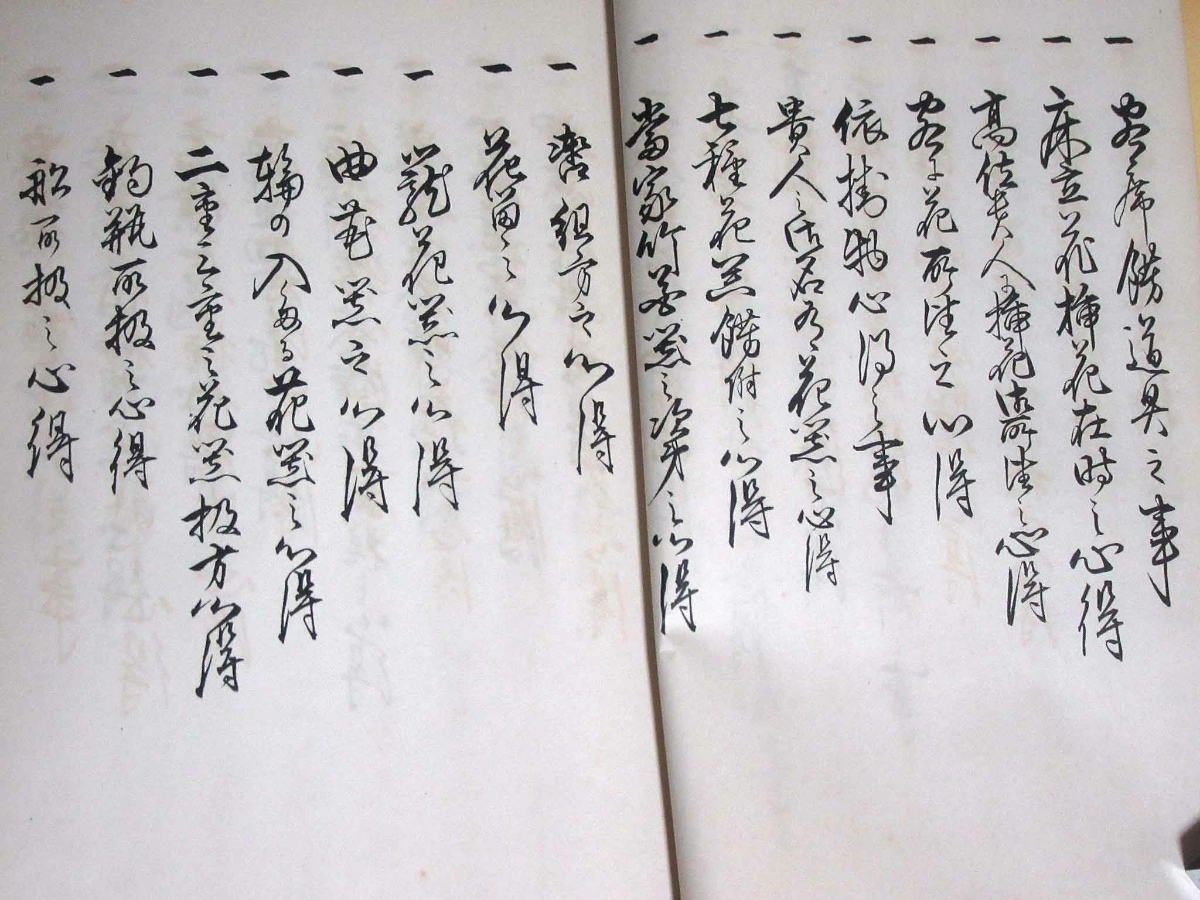 一 客席餝道具之事
一 床立花挿花在時之心得
一 高位貴人え挿花御所望之心得
一 客え花所望之心得
一 依掛物心得之事
一 貴人之御名有花器之心得
一 七種花器餝附之心得
一 当家竹花器之次第之心得
一 轡組方之心得
一 花留之心得
一 籠花器之心得
一 曲花器之心得
一 輪の入たる花器之心得
一 二重三重之花器扱方心得
一 釣瓶取扱之心得
一 船取扱之心得